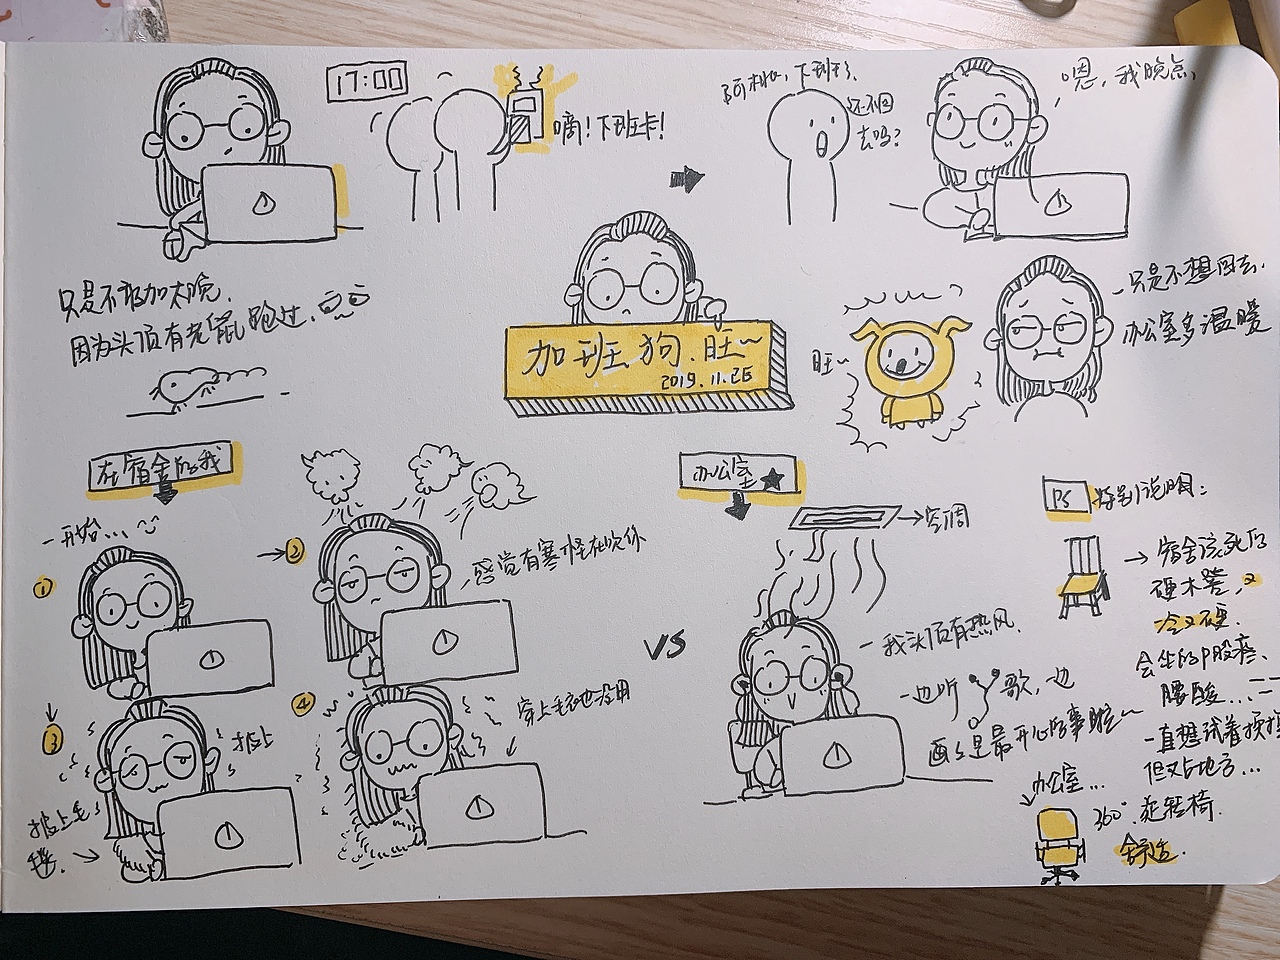 17:00
嘀！下班卡！
下班了，
还不回
去吗？
嗯，我晚点
只是不敢加太晚，
因为头顶有老鼠跑过，
加班狗.旺~
2019.11.26
旺~
只是不想回去，
办公室多温暖
在宿舍的我
一开始...
①
→②
感觉有寒怪在吹你
③
披上
披上毛
毯.
④
穿上毛衣也没用
VS
办公室★
→空调
我头顶有热风.
一边听
歌，一边
画画是最开心的事啦~
PS
特别说明：
→宿舍该死的
硬木凳，又
冷又硬.
会坐的P股疼、
腰酸...
一直想试着换换
但又占地方...
办公室...
360°.旋转椅.
舒适.